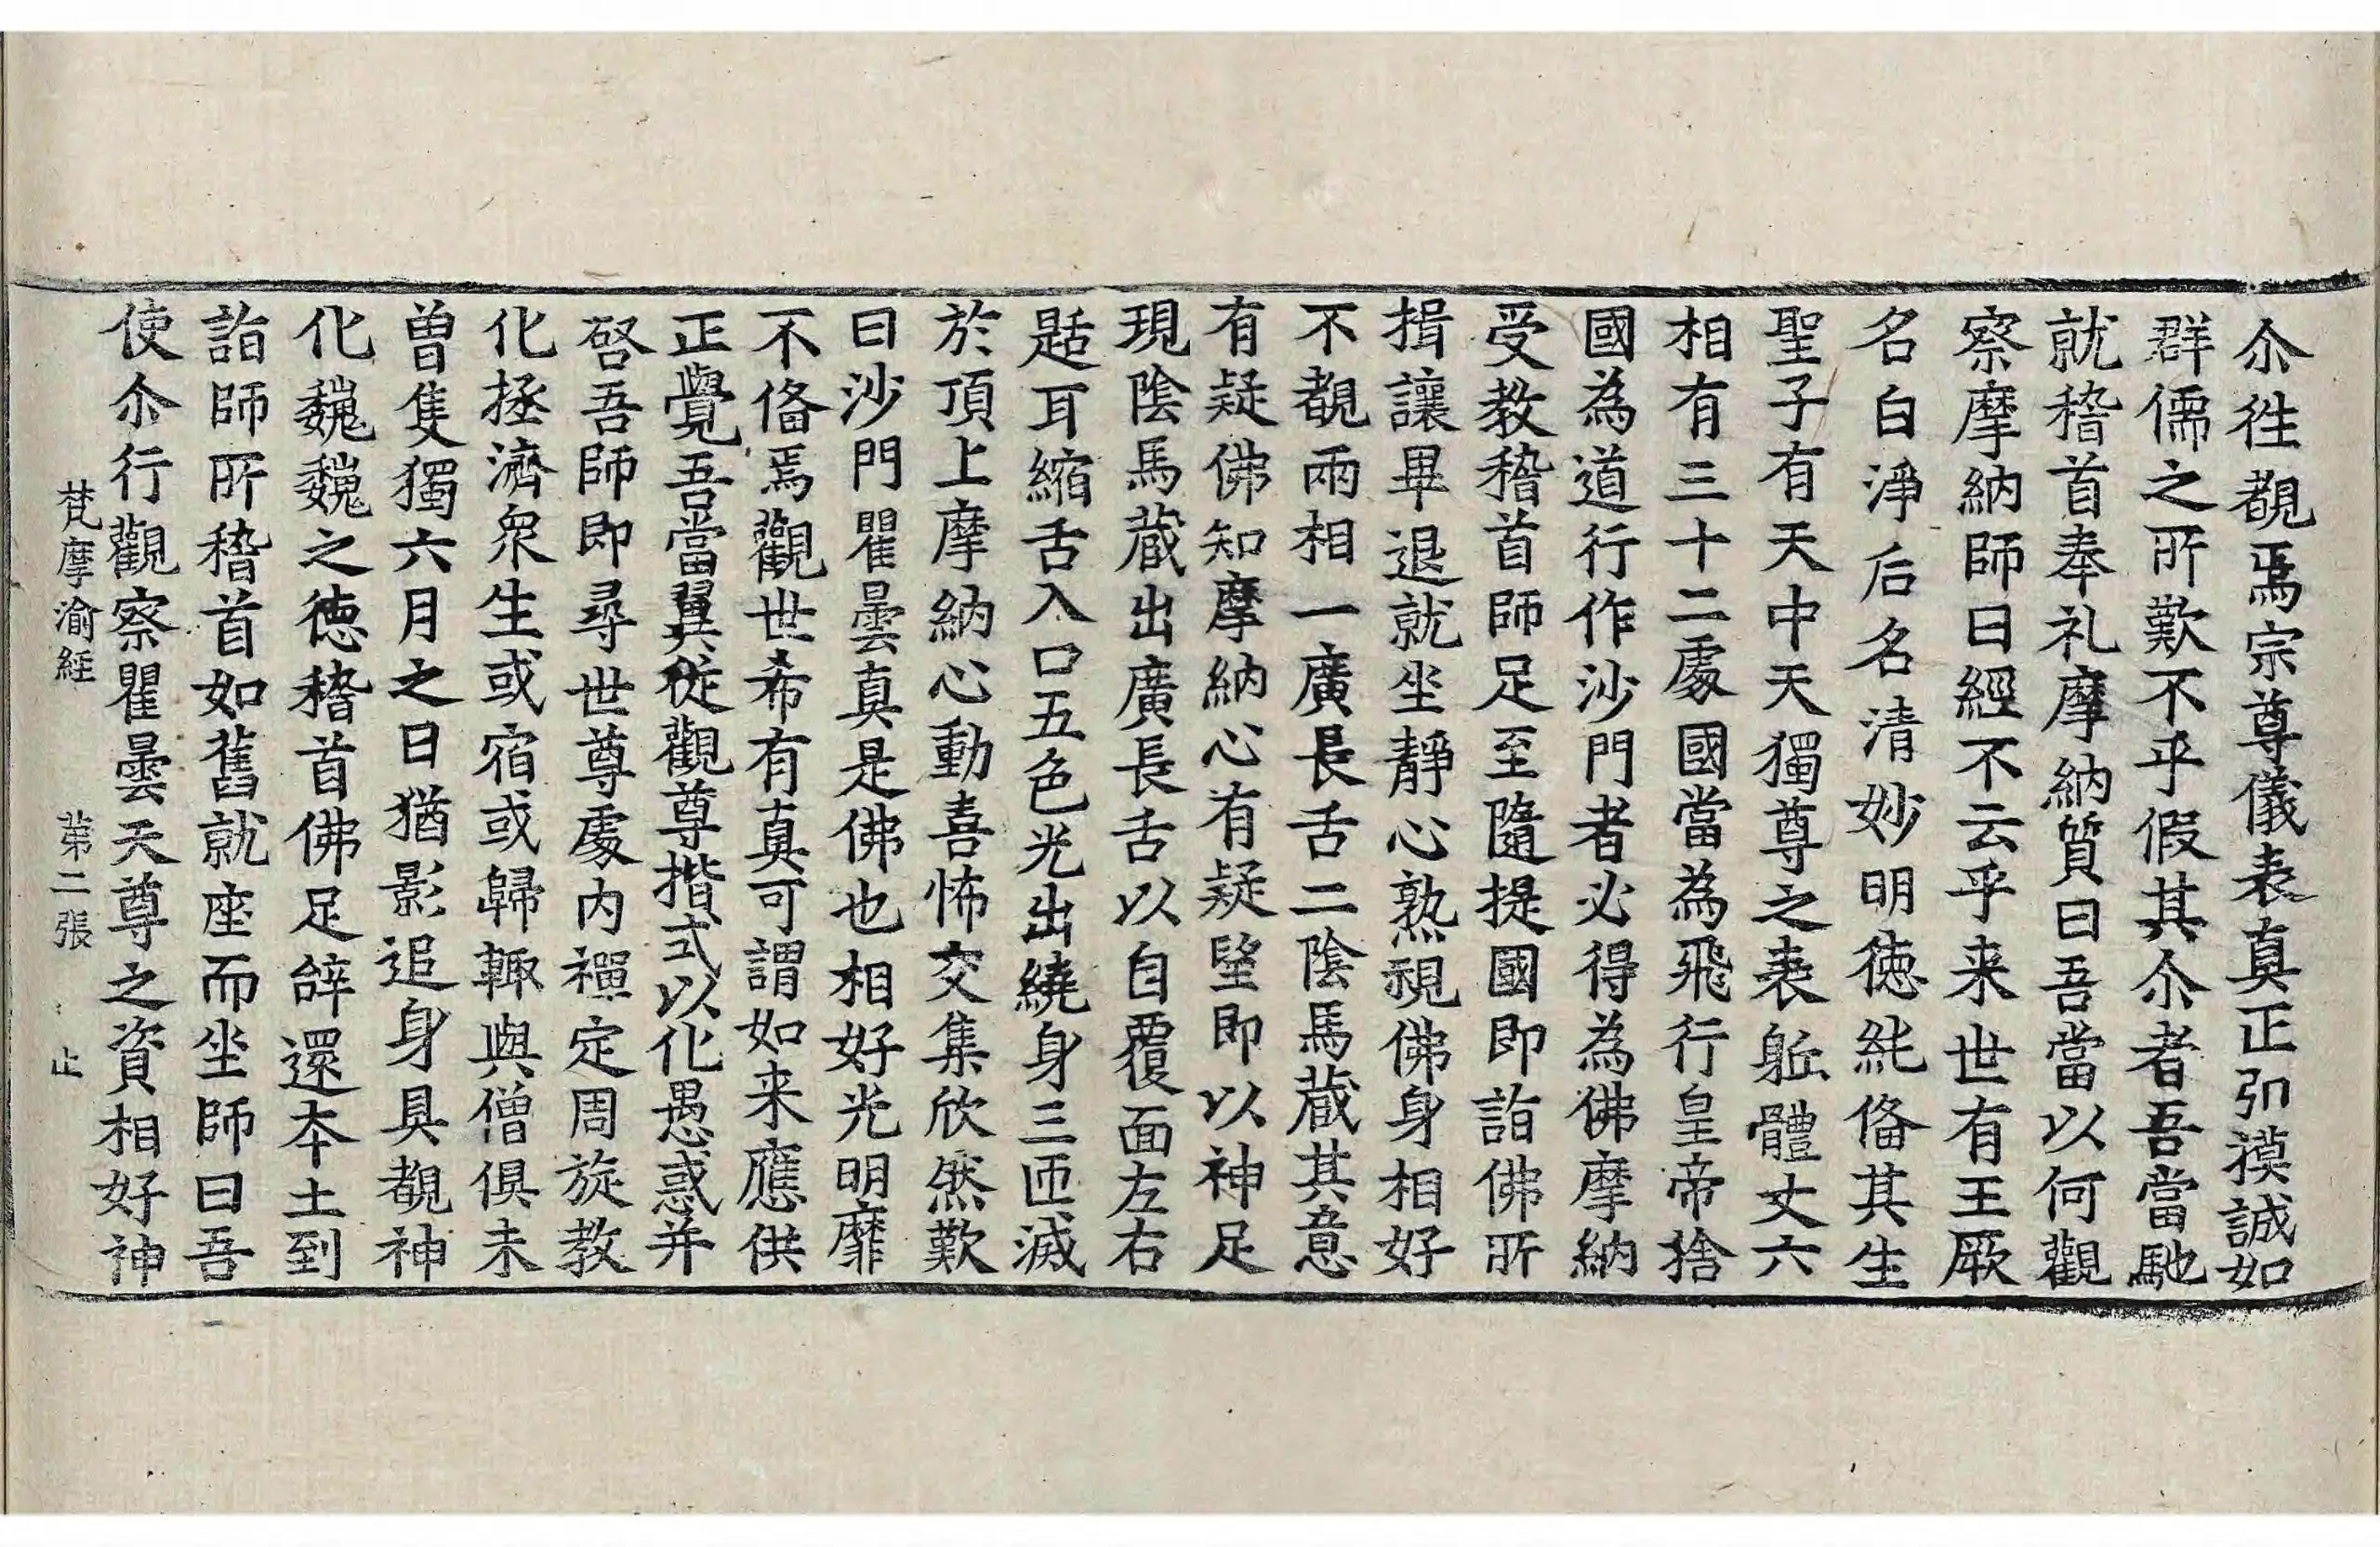 尒徃覩焉宗尊儀表真正㓞謨誠如
群儒之所歎不乎假其尒者吾當馳
就稽首奉礼摩納質曰吾當以何觀
察摩納師曰經不云乎来世有王厥
名白淨后名清妙明徳純俻其生
聖子有天中天獨尊之表軀體丈六
相有三十二處國當為飛行皇帝捨
國為道行作沙門者必得為佛摩納
受教稽首師足至隨提國即詣佛所
揖讓畢退就坐靜心熟視佛身相好
不覩兩相一廣長舌二陰馬蔵其意
有疑佛知摩納心有疑望即以神足
現陰馬蔵出廣長舌以自覆面左右
舐耳縮舌入口五色光出繞身三匝滅
於頂上摩納心動喜怖交集欣然歎
曰沙門瞿曇真是佛也相好光明靡
不俻焉觀世希有真可謂如来應供
正覺吾當翼從觀尊揩式以化愚惑并
啓吾師即尋世尊處内禪定周旋教
化拯濟衆生或宿或歸輙與僧俱未
曽隻獨六月之日猶影追身具覩神
化巍巍之徳稽首佛足辝還夲土到
詣師所稽首如舊就座而坐師曰吾
使尒行觀察瞿曇天尊之資相好神
梵摩渝經　第二張　止